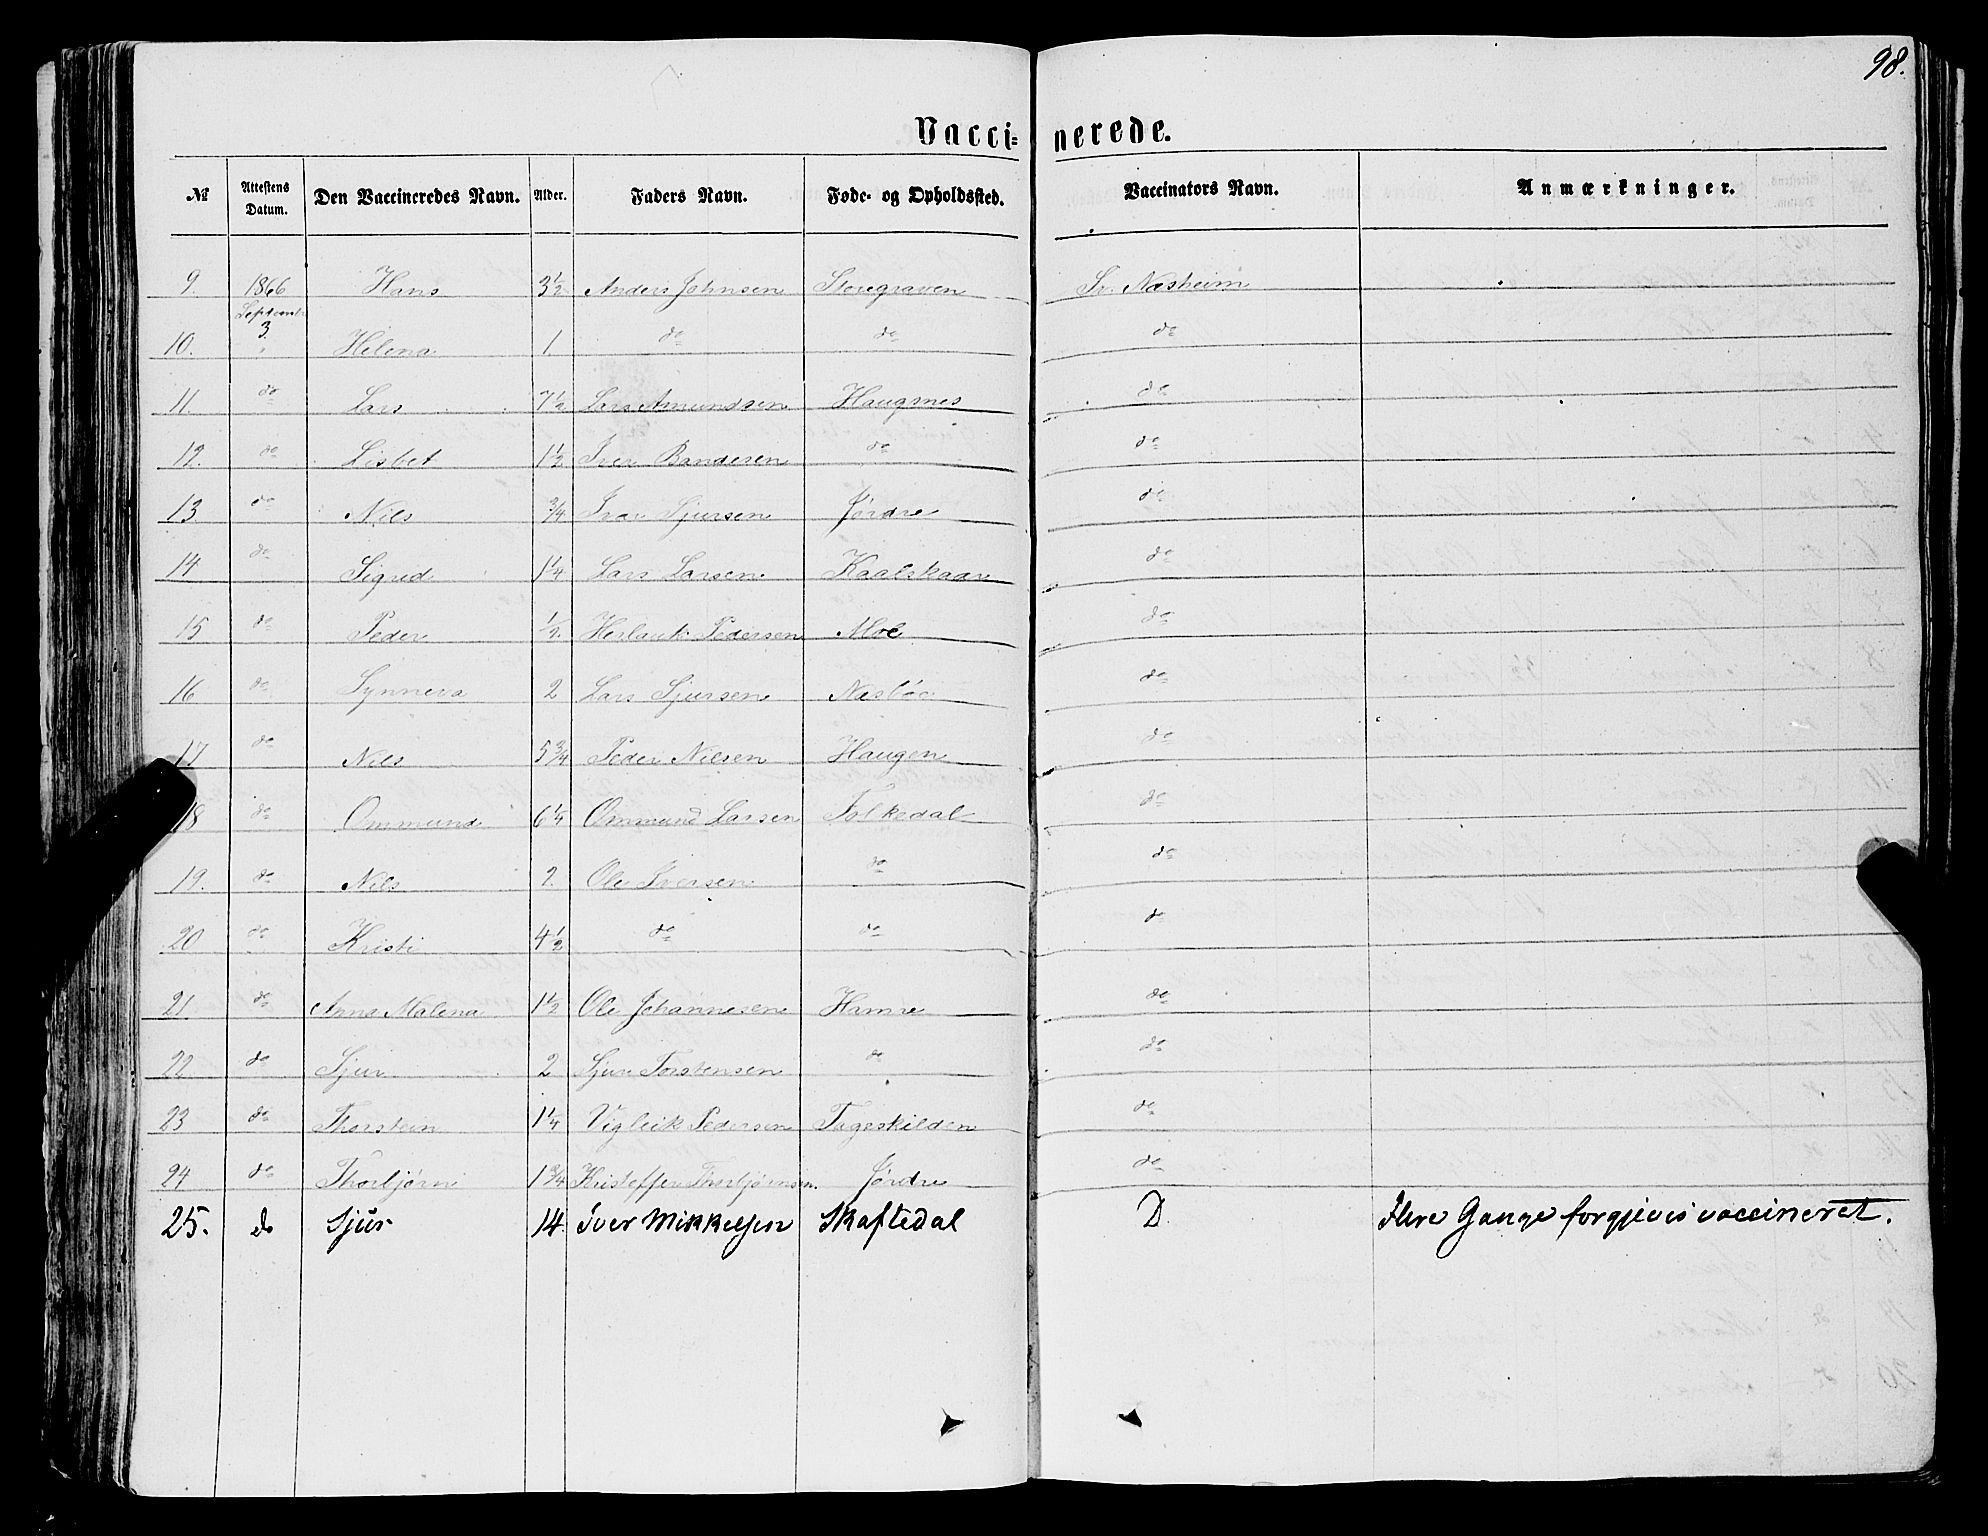 98.
Vaccinerede.
№ Attestens Datum. Den Vaccineredes Navn. Alder. Faders Navn. Føde- og Opholdssted. Vaccinators Navn. Anmærkninger.
9. 1866 Septemb 3. Hans 3½ Anders Johnsen Storegraven Sv. Næsheim
10. " Helena 1 do do do
11. do Lars 7½ Lars Amundsen Haugnes do
12. do Lisbet 1½ Iver Bandesen do do
13. do Nils ¾ Ivar Sjursen Jørdre do
14 do Sigrid 1¼ Lars Larsen Kaalskaar do
15 do Peder ½ Herlauk Pedersen Moe do
16 do Synneva 2 Lars Sjursen Næsbøe do
17 do Nils 5¾ Peder Nilsen Haugen do
18 do Ommund 6¼ Ommund Larsen Folkedal do
19. do Nils 2. Ole Iversen do do
20 do Kristi 4½ do do do
21 do Anna Malena 1½ Ole Johannesen Hamre do
22 do Sjur 2 Sjur Torstensen do do
23 do Thorstein 1¼ Vigleik Pedersen Tageskilden do
24 do Thorbjørn 1¾ Kristoffer Thorbjørnsen Jørdre do
25. do Sjur 14. Iver Mikkelsen Skaftedal D. flere Gange forgjeves vaccineret.